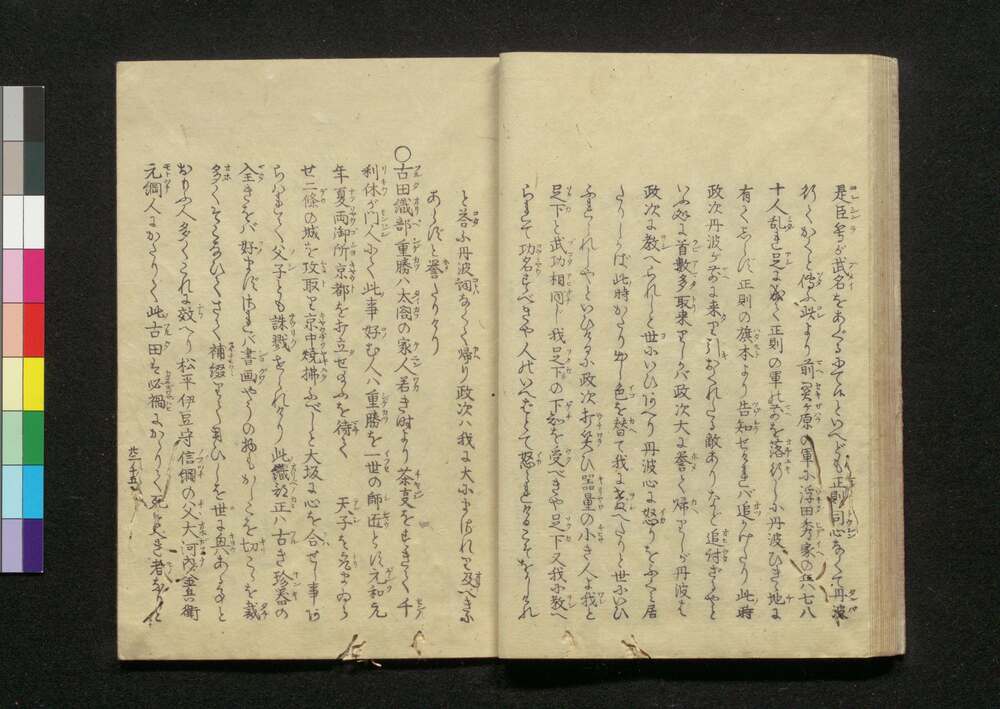 是臣等が武名をあぐる
行くかくと傳ふ此より前関ヶ原の軍に浮田秀家の兵七八
十人乱れ足に成く正則の軍の前を落行しに丹波ひきく地に
有てしらず正則の旗本より告知せければ追かけたり此時
政次丹波が前に来り引おくれたる敵ありなど追付ざるやと
いふ処に首數多取来りしかば政次大に誉て帰りしが丹波は
政次に教へられしと世にいひ丹波心に怒りをふくみ居
たりしかば此時かたり出し色を替て我に教へたりと世にいひ
ふらされしやといひけるに政次打笑ひ器量の小き人よ我と
足下と武功相同じ我足下の下知を受べきや足下又我に教へ
られて功名すべきや人のいへばとて怒らるることを
と答ふ丹波詞なくて帰り政次は我に大にまされり及べきに
あらずと誉たりけり
○古田織部重勝は太閤の家人若き時より茶事をすきて千
利休が門人にて此事好む人は重勝を一世の師匠とす元和元
年夏両御所京都を打立せ玉ふを待て 天子を
せ二條の城を攻取て京中焼拂ふべしと大坂に心を合せし事
父子とも誅戮せられけり此織部正は古き珍器の
全きをば好まず書画やうの物もかしこを切こゝを裁
多くそこなひてさて補綴して用ひしを世に興あると
おもふ人多くこれに效へり松平伊豆守信綱の父大河内金兵衛
元綱人にかたりて此古田は必禍にかゝりて死すべき者なりと